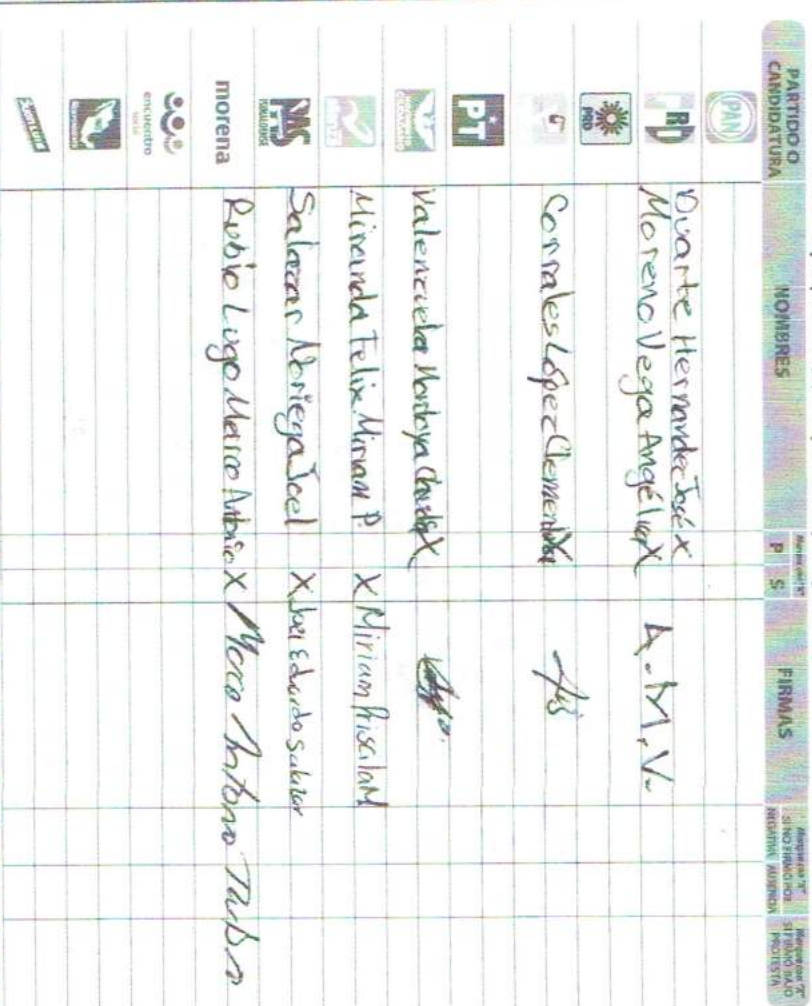 PARTIDO O CANDIDATURA
NOMBRES
Marque con "X"
P S
FIRMAS
Marque con "X" SI NO FIRMÓ POR
NEGATIVA AUSENCIA
Marque con "X" SI FIRMÓ BAJO PROTESTA
PAN
Duarte Hernandez José X
PRI
Moreno Vega Angélica X A.M.V.
PRD
Corrales López Clementina X
PT
Valenzuela Montoya X
Miranda Felix Miriam P. X Miriam Priscila M
PAS
SINALOENSE
Salazar Noriega Joel X Joel Eduardo Salazar
morena
Rubio Lugo Marco Antonio X Marco Antonio
encuentro
social